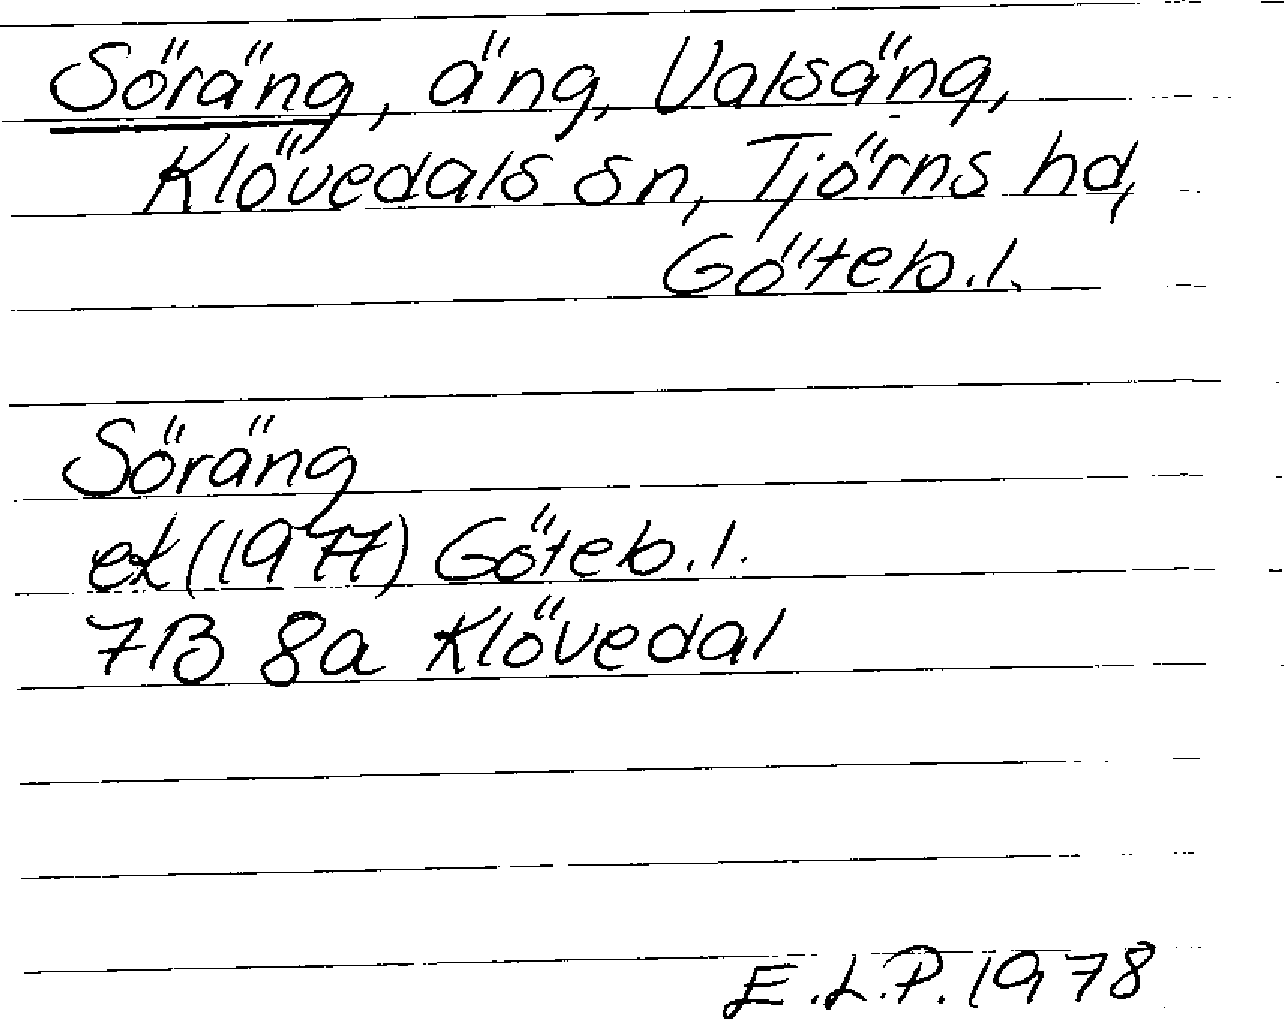 Söräng, äng, Valsäng,
Klövedals sn, Tjörns hd,
Göteb.l.
Söräng
ek (1977) Göteb.l.
7B 8a Klövedal
E.L.P. 1978